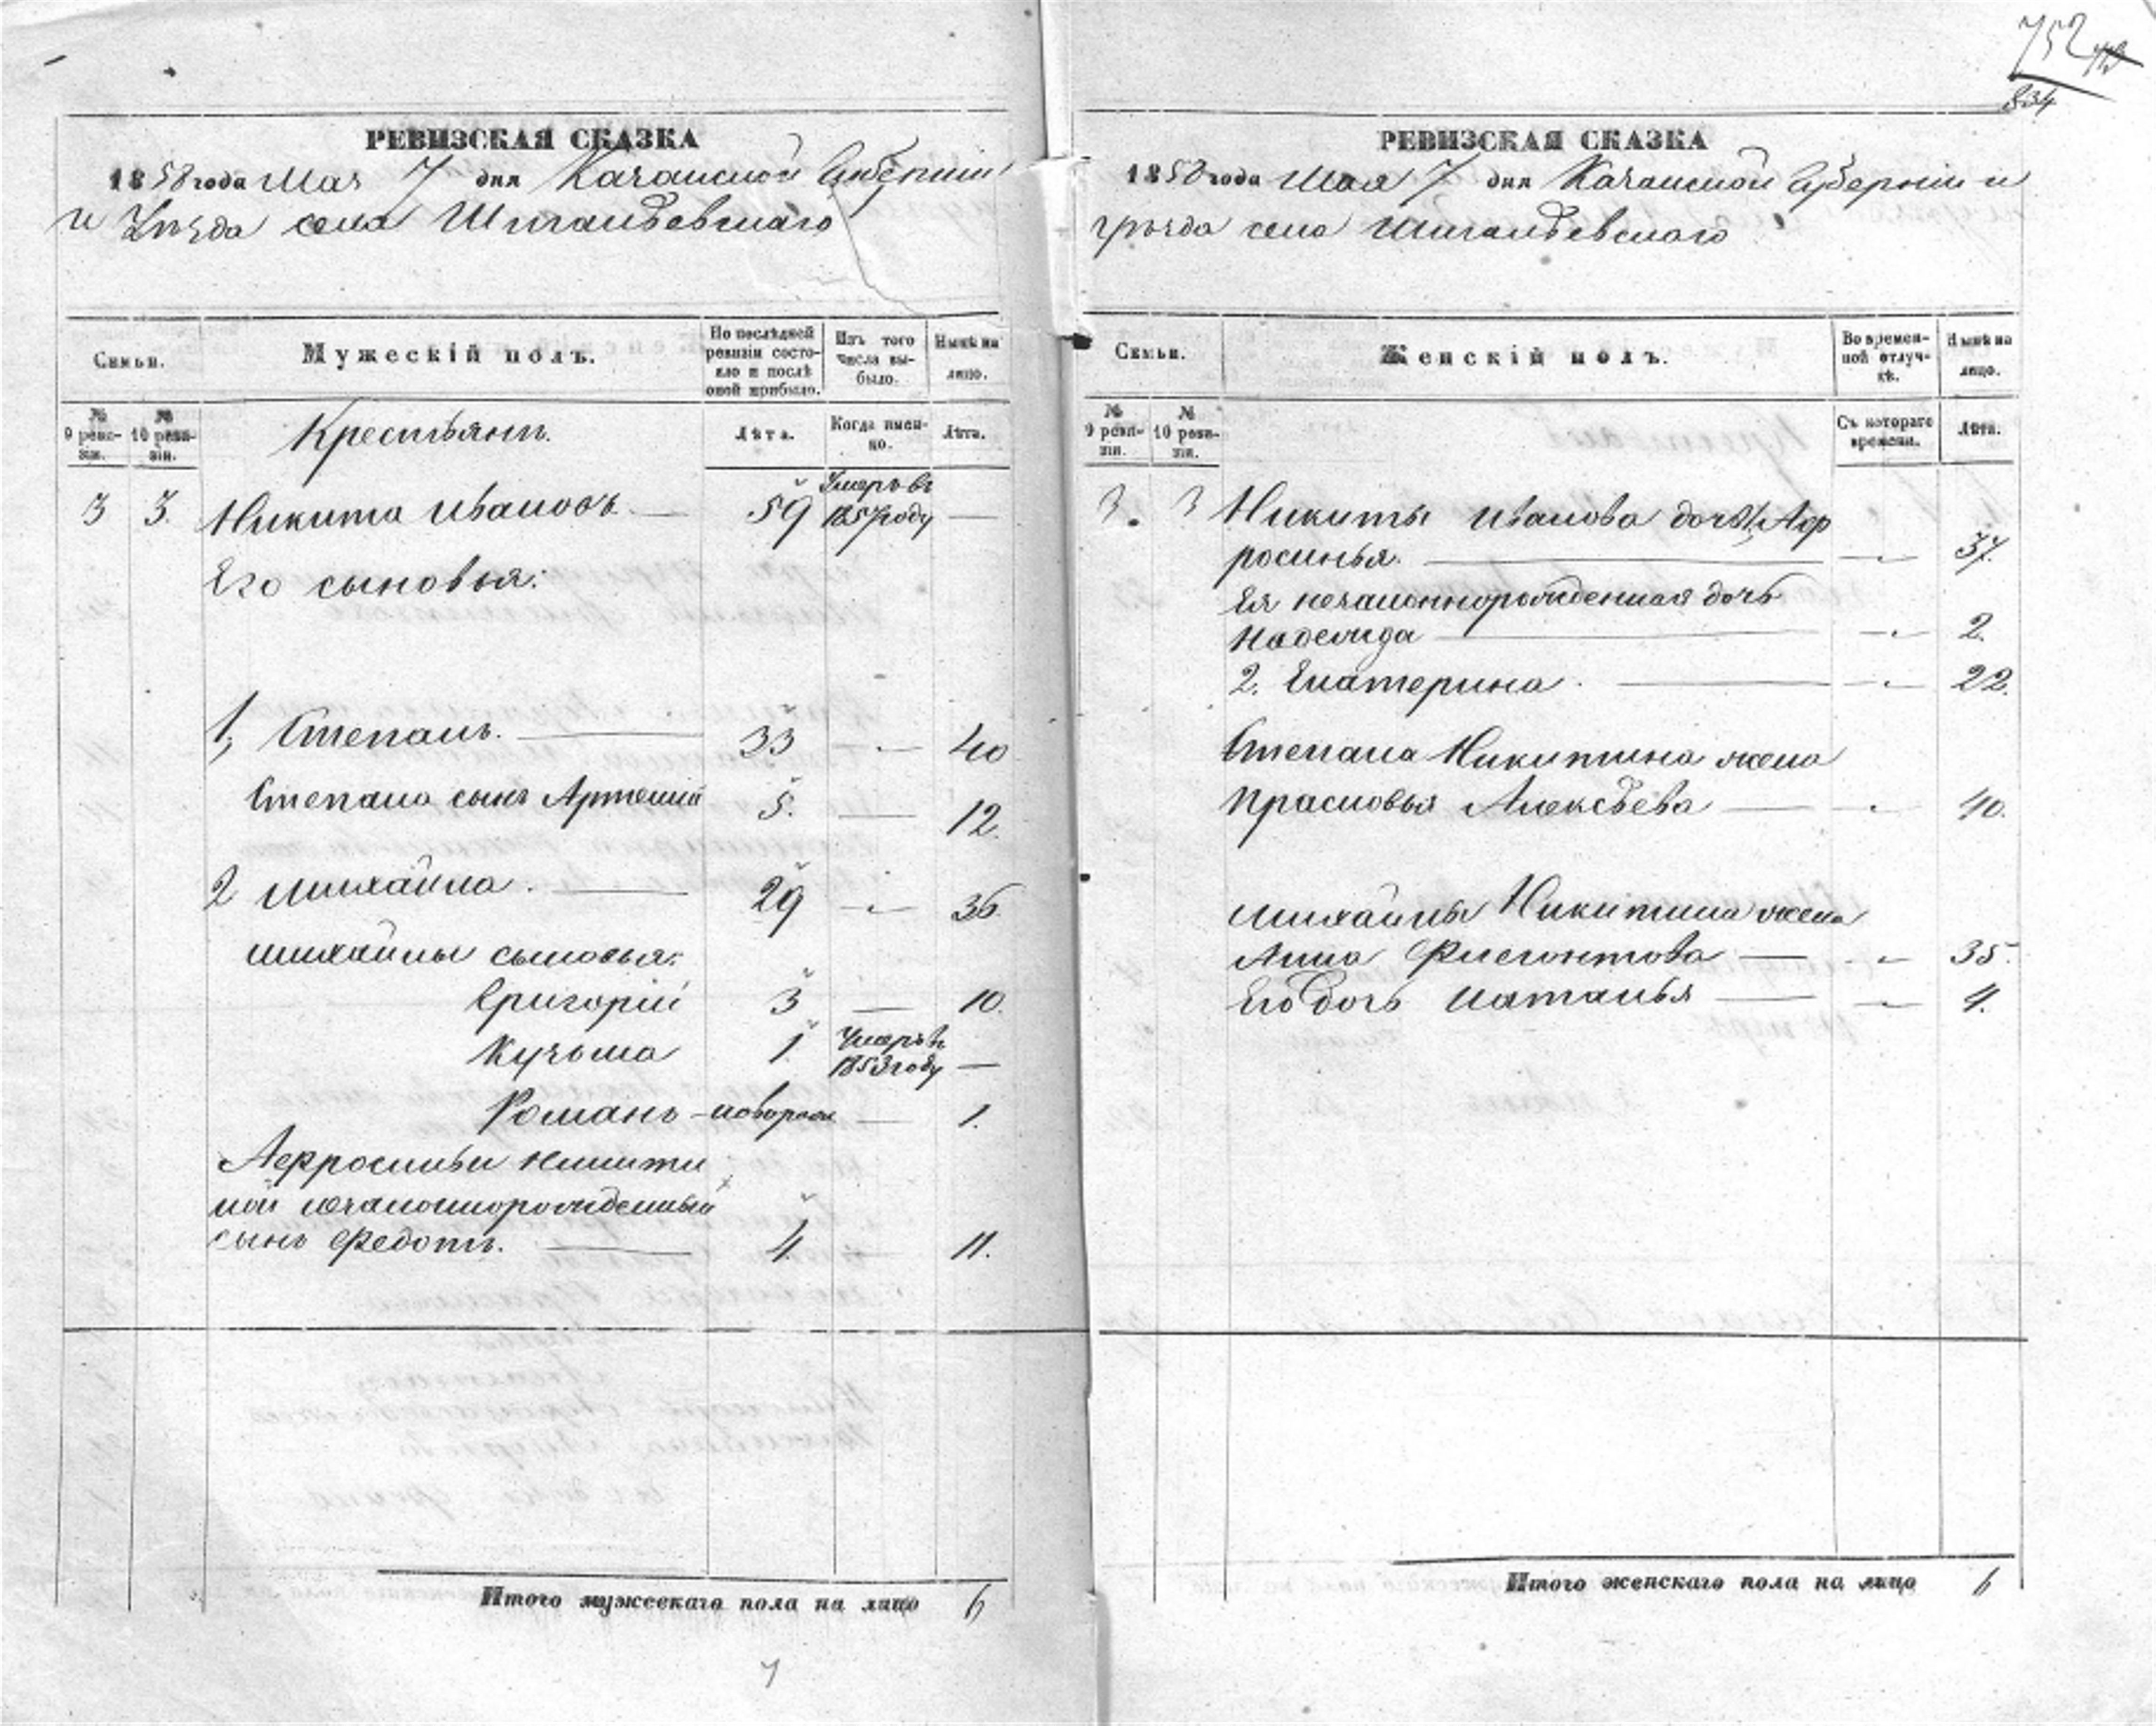 752
834
РЕВИЗСКАЯ СКАЗКА
1858 года Мая 7 дня Казанской Губерніи
и Уѣзда села Шигалѣевскаго
Семьи.
Мужескій полъ.
По послѣдней ревизіи состояло и послѣ оной прибыло.
Изъ того числа выбыло.
Нынѣ на лицо.
№ 9 ревизіи.
№ 10 ревизіи.
Крестьянъ.
Лѣта.
Когда именно.
Лѣта.
3 3. Никита Ивановъ. — 59 Умеръ въ 1857 году —
Его сыновья:
1, Степанъ. — 33 — 40
Степана сынъ Артемій 5. — 12.
2 Михайла. — 29 — 36.
Михайлы сыновья:
Григорій 3 — 10.
Кузьма 1. Умеръ въ 1853 году —
Романъ - новорож — 1.
Афросиньи Никити
ной незаконнорожденный
сынъ Федотъ. — 4. 11.
Итого мужескаго пола на лицо 6
7
РЕВИЗСКАЯ СКАЗКА
1858 года Мая 7 дня Казанской Губерніи и
уѣзда села Шигалѣевскаго
Семьи.
Женскій полъ.
Во временной отлучкѣ.
Нынѣ на лицо.
№ 9 ревизіи.
№ 10 ревизіи.
Съ котораго времени.
Лѣта.
3. 3 Никиты Иванова дочь 1, Аф
росинья. — — 37.
Ея незаконнорожденная дочь
Надежда — — 2.
2. Екатерина. — — 22.
Степана Никитина жена
Прасковья Алексѣева — 40.
Михайлы Никитина жена
Анна Филегонтова — — 35.
Его дочь Наталья — — 4.
Итого женскаго пола на лицо 6